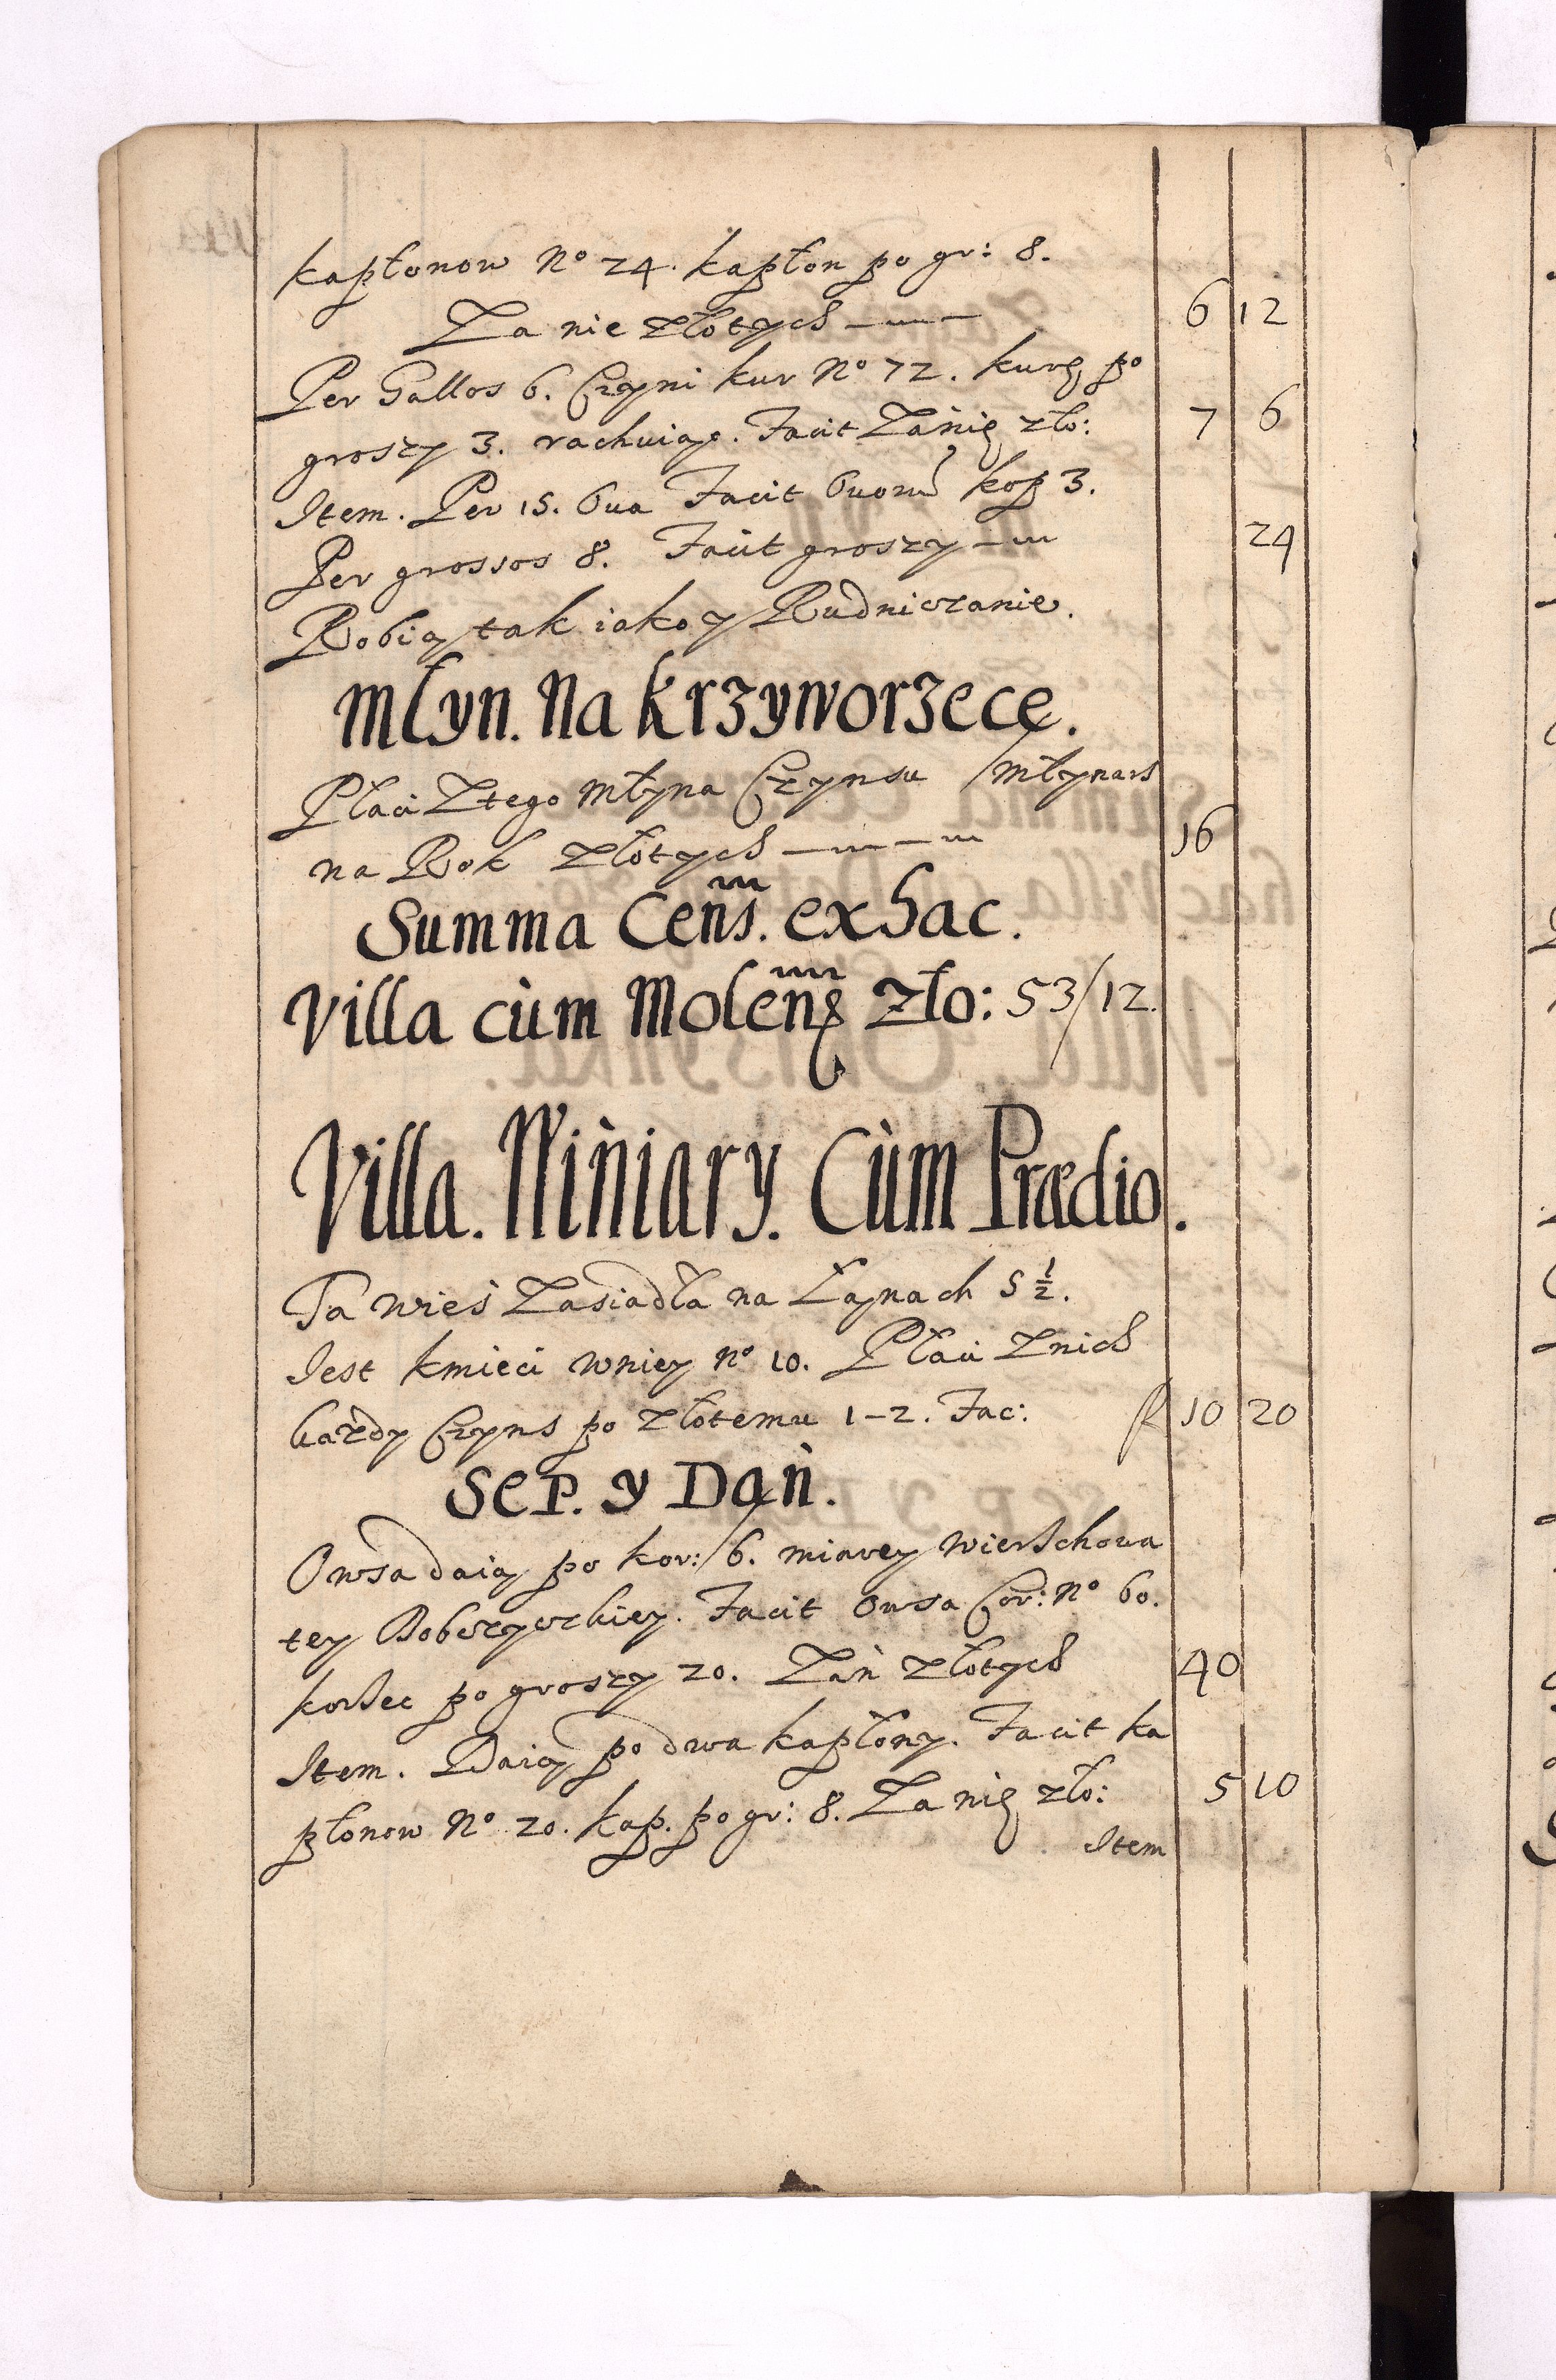 kapłonow No 24. kapłon po gr: 8.
Za nie złotych — 6 12
Per Gallos 6. Czyni kur No 72. kurę po
groszy 3. rachuiąc. Facit Zanię zło: 7 6
Item. Per 15. Oua Facit Ouorũ kop 3.
Per grossos 8. Facit groszy — 24
Robią tak iako y Rudniczanie.
Młyn. Na Krzyworzece.
Płaci Ztego Młyna Czynsu Młynarz
na Rok złotych — 16
Summa Cens. ex hac.
Villa cùm Molend zło: 53/12.
Villa. Winiary. Cùm Prædio.
Ta wieś Zasiadła na Łanach 5 1/2.
Jest kmieci wniey No 10. Płaci Znich
każdy Czyns po złotemu 1-2. Fac: f 10 20
Sep. y Dań.
Owsa daią po kor: 6. miarey Wierschowa
tey Bobczyckiey. Facit Owsa Cor: No 60.
korsec po groszy 20. Zań złotych 40
Item. Daią po dwa kapłony. Facit ka
płonow No 20. kap. po gr: 8. Za nię zło: 5 10
Item